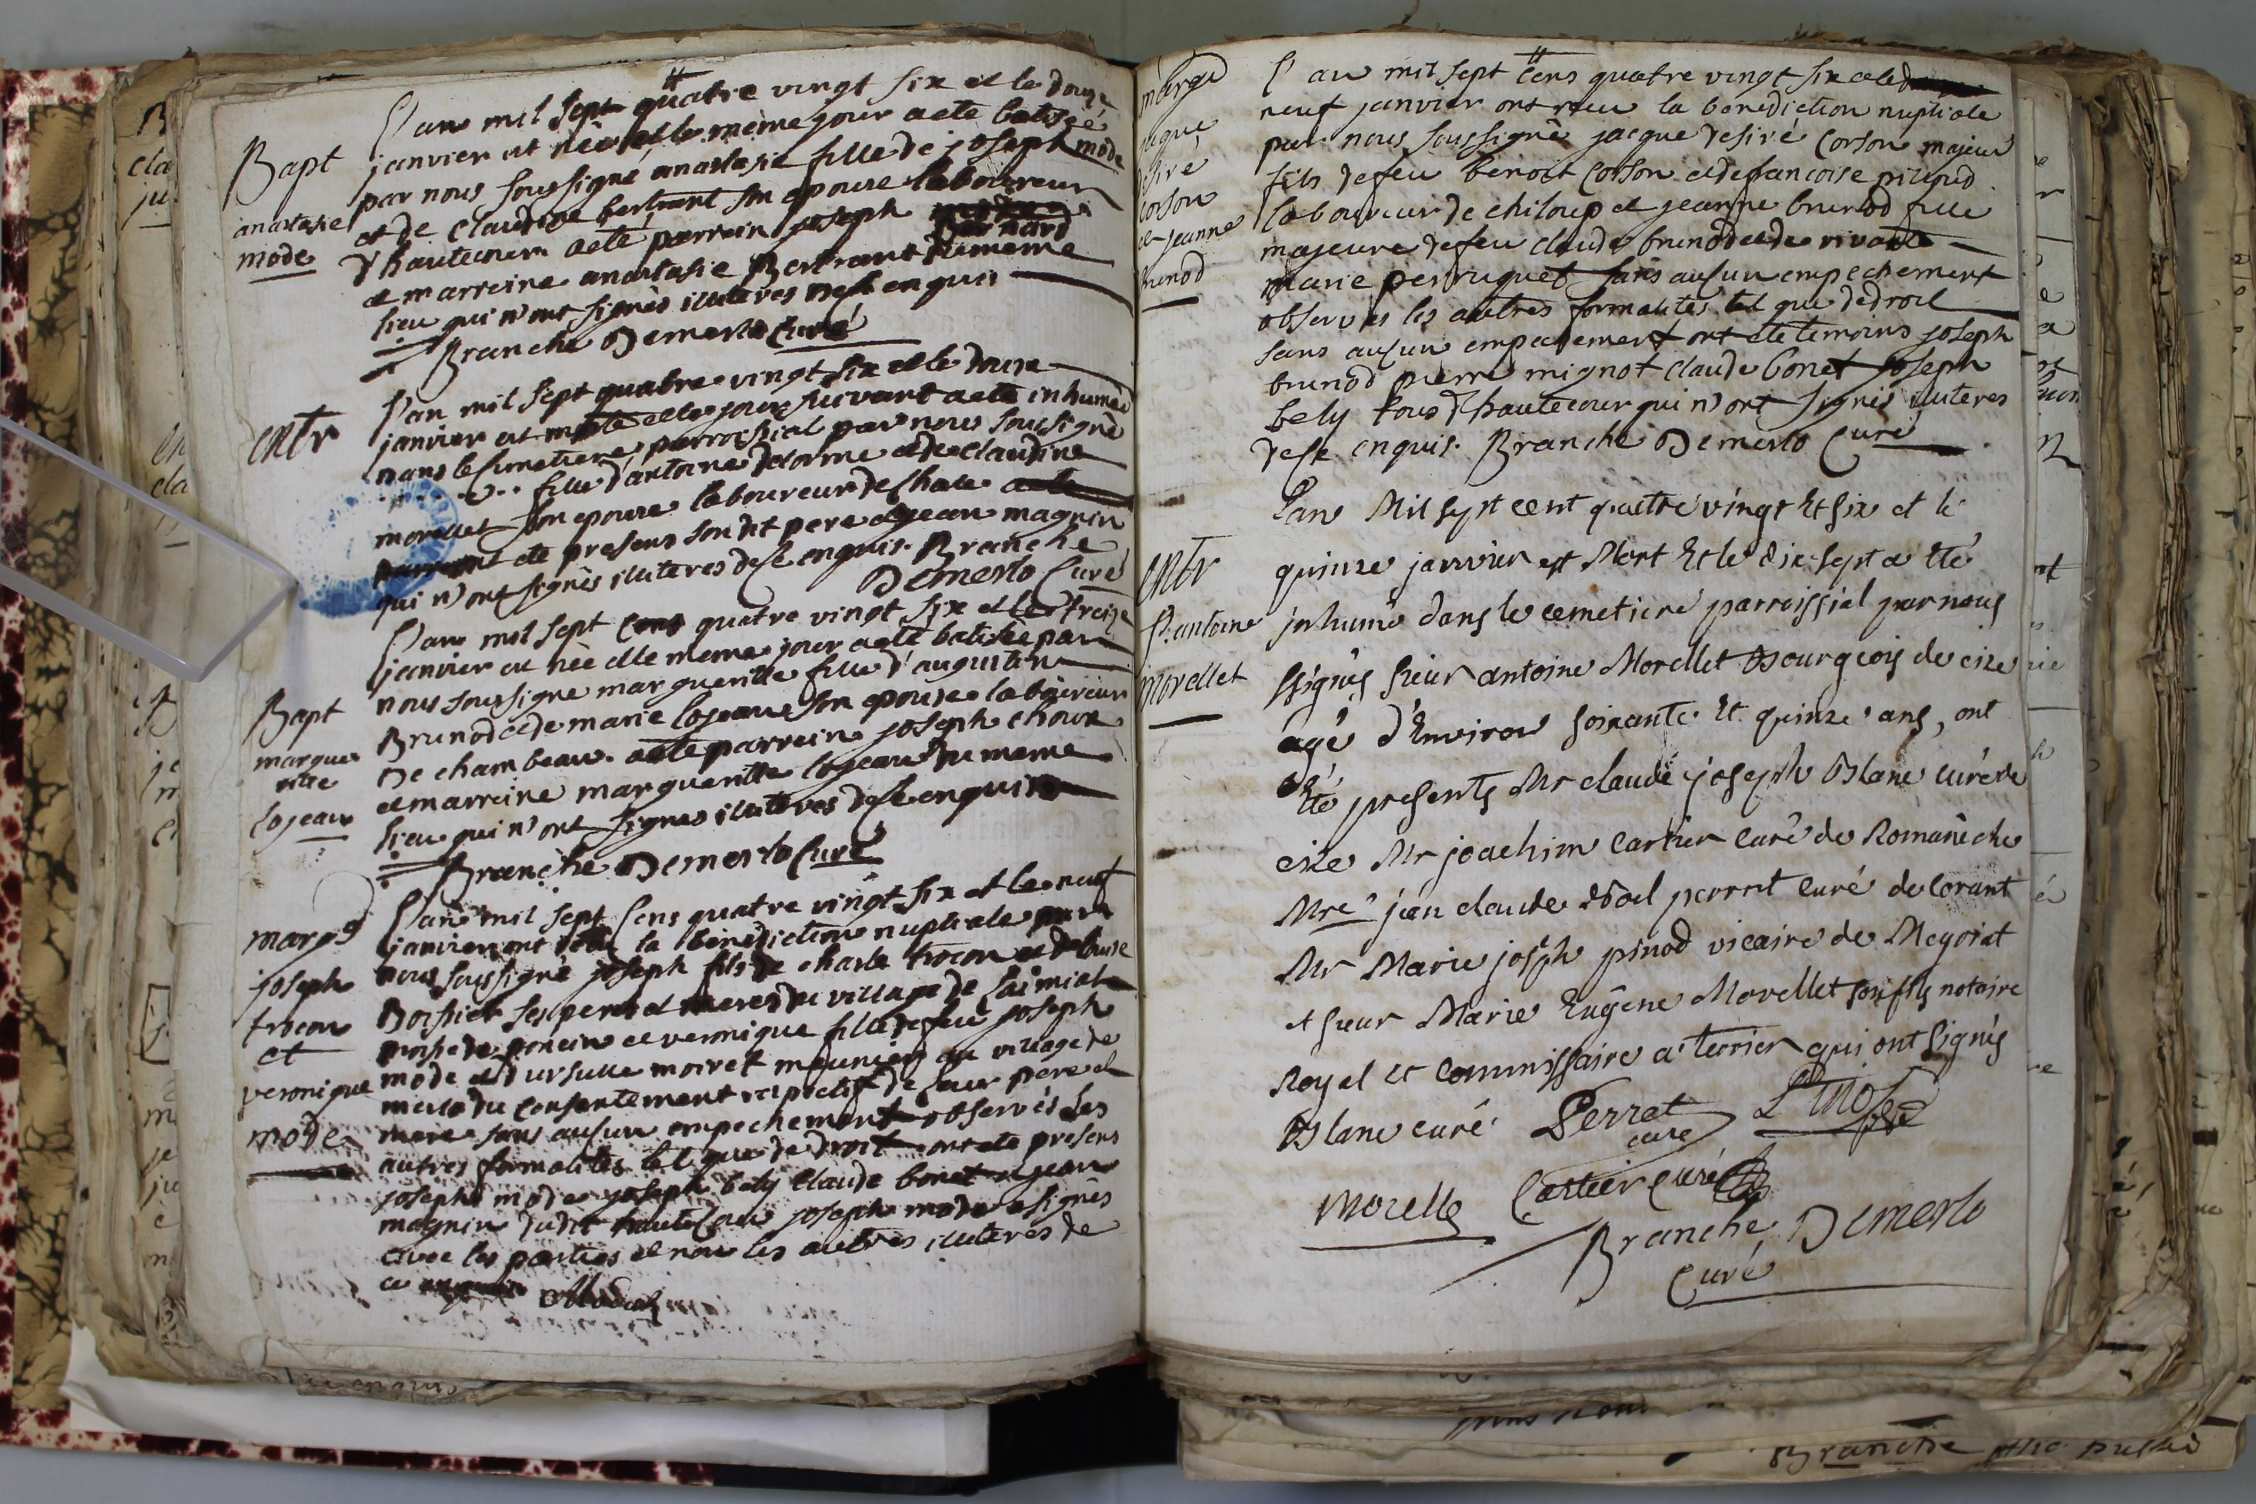 Bapt
anastasie
mode
L'an mil sept quatre vingt six et le douze
janvier est née et le même jour a eté batisée
par nous soussigné anastasie fille de joseph mode
et de claudine bertrant son epouse laboureur
d'hautecour a eté parrein joseph bernard
et marreine anastasie Bertrant du meme
lieu qui n'ont signés illiteres de ce enquis
Branche Demerlo Curé
entr
L'an mil sept quatre vingt six et le douze
janvier est morte et le jour suivant a eté inhumée
dans le cimetiere parroissial par nous soussigné
fille d'antoine delorme et de claudine
morellet son epouse laboureur de Chale
ont eté presens son dit pere et jean magnin
qui n'ont signés illiteres de ce enquis. Branche
Demerlo Curé
Bapt
margue
ritte
lojean
L'an mil sept cens quatre vingt six et le treize
janvier est née et le meme jour a eté batisée par
nous soussigné margueritte fille d'augustin
Brunod et de marie lojean son epouse laboureur
De chambeau. a eté parrein joseph choux
et marreine margueritte lojean du meme
lieu qui n'ont signes illiteres de ce enquis
Branche Demerlo Curé
marge
joseph
trocon
et
veronique
mode
L'an mil sept cens quatre vingt six et le neuf
janvier ont reçu la benediction nuptiale par
nous soussigné joseph fils de charle trocon et de louise
Boissier ses peres et meres du village de
de poncin et veronique fille de feu joseph
mode et d'ursulle moiret meunier au village de
merlo du consentement respectif de leur pere et
mere sans aucun empechement observés les
autres formalités tel que de droit ont ete presens
joseph mode joseph bely Claude bonet et jean
magnin dudit hautecour joseph mode a signés
avec les parties et nous les autres illiteres de
ce enquis
marge
jaque
desiré
corson
et jeanne
brunod
L'an mil sept cens quatre vingt six et le
neuf janvier ont reçu la benediction nuptiale
par nous soussigné jacque desiré Corson majeur
fils de feu benoit Corson et de francoise pitiud
laboureur de chiloup et jeanne brunod fille
majeure de feu claude brunod et de vivante
marie perruquet sans aucun empechement
observés les autres formalités tel que de droit
sans aucun empechement ont eté temoins joseph
brunod pierre mignot claude bonet joseph
bely tous d'hautecour qui n'ont signés illiteres
de ce enquis. Branche Demerlo Curé
entr
S. antoine
morellet
L'an Mil sept cent quattre vingt Et six et le
quinze janvier est Mort Et le dix-sept a Eté
inhumé dans le cemetiere parroissial par nous
ssignés sieur antoine Morellet Bourgeois de cize
agé d'Environ soixante Et quinze ans, ont
Eté presents Mr claude joseph Blanc curé de
cize Mr joachim Cartier Curé de Romaneche
Mre jean claude perret curé de Corant
Mr Marie joseph pinod vicaire de Meyriat
et sieur Marie Eugene Morellet son fils notaire
Royal et commissaire a terrier qui ont signés
Blanc curé Perret
curé
Morelle Cartier Curé
Branche Demerlo
Curé
Branche